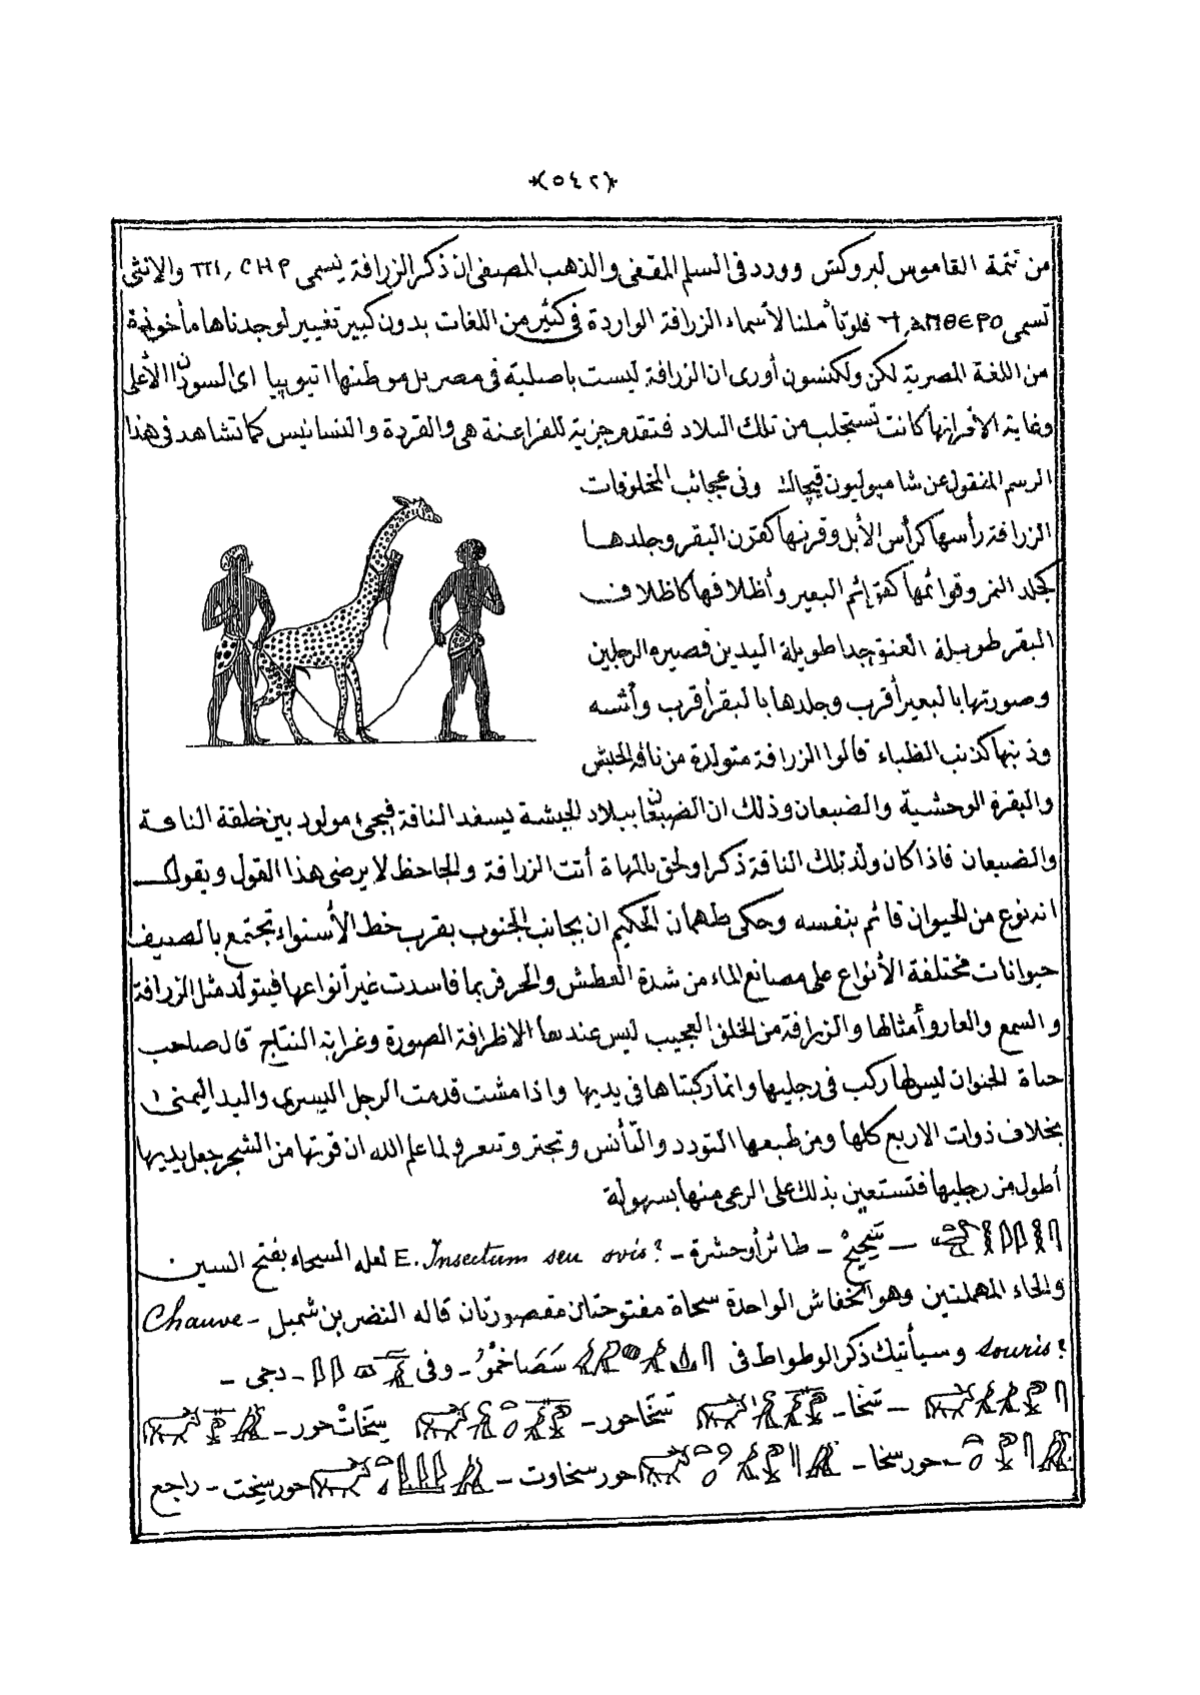 *(٥٤٢)*
من تتمة القاموس لبروكش وورد فى السلم المقفى والذهب المصفى ان ذكر الزرافة يسمى ΠΙ,CHP والانثى
تسمى ϯ,ΔΠΘΕΡΟ فلو تأملنا لأسماء الزرافة الواردة فى كثير من اللغات بدون كبير تغيير لوجدناها مأخوذة
من اللغة المصرية لكن ولكنسون أورى ان الزرافة ليست باصلية فى مصر بل موطنها اتيوبيا اى السودان الأعلى
وغاية الأمر انها كانت تستجلب من تلك البلاد فتقدم جزية للفراعنة هى والقردة والنسانيس كما تشاهد فى هذا
الرسم المنقول عن شامبوليون فيچاك وفى عجائب المخلوقات
الزرافة رأسها كرأس الأبل وقرنها كقرن البقر وجلدها
كجلد النمر وقوائمها كقوائم البعير وأظلافها كاظلاف
البقر طويلة العنق جدا طويلة اليدين قصيره الرجلين
وصورتها بالبعير أقرب وجلدها بالبقر أقرب وأشبه
وذنبها كذنب الظباء قالوا الزرافة متولدة من ناقة الحبش
والبقرة الوحشية والضبعان وذلك ان الضبعان ببلاد الحبشة يسفد الناقة فيجىء مولود بين خلقة الناقة
والضبعان فاذا كان ولد تلك الناقة ذكرا ولحق بالمهاة أتت الزرافة والجاحظ لا يرضى هذا القول ويقول
انه نوع من الحيوان قائم بنفسه وحكى طهمان الحكيم ان بجانب الجنوب بقرب خط الأستواء تجتمع بالصيف
حيوانات مختلفة الأنواع على مصانع الماء من شدة العطش والحر فربما فاسدت غير أنواعها فيتولد مثل الزرافة
والسمع والعار وأمثالها والزرافة من الخلق العجيب ليس عندها الا ظرافة الصورة وغرابة النتاج قال صاحب
حياة الحيوان ليس لها ركب فى رجليها وانما ركبتاها فى يديها واذا مشت قدمت الرجل اليسرى واليد اليمنى
بخلاف ذوات الاربع كلها ومن طبعها التودد والتأنس وتجتر وتبعر ولما علم الله ان قوتها من الشجر جعل يديها
أطول من رجليها فتستعين بذلك على الرعى منها بسهولة
طائر أو حشرة - E. Insectum seu avis? لعله السحاء بفتح السين
والحاء المهملتين وهو الخفاش الواحدة سحاة مفتوحتان مقصورتان قاله النضر بن شميل - Chauve
souris? وسيأتيك ذكر الوطواط فى سَصَاخْمُوْ - وفى - دجى -
سَخَا - سَخَاحور - سِخَاتْ حور -
حور سخا - حور سخاوت - حور سِيخت - راجع